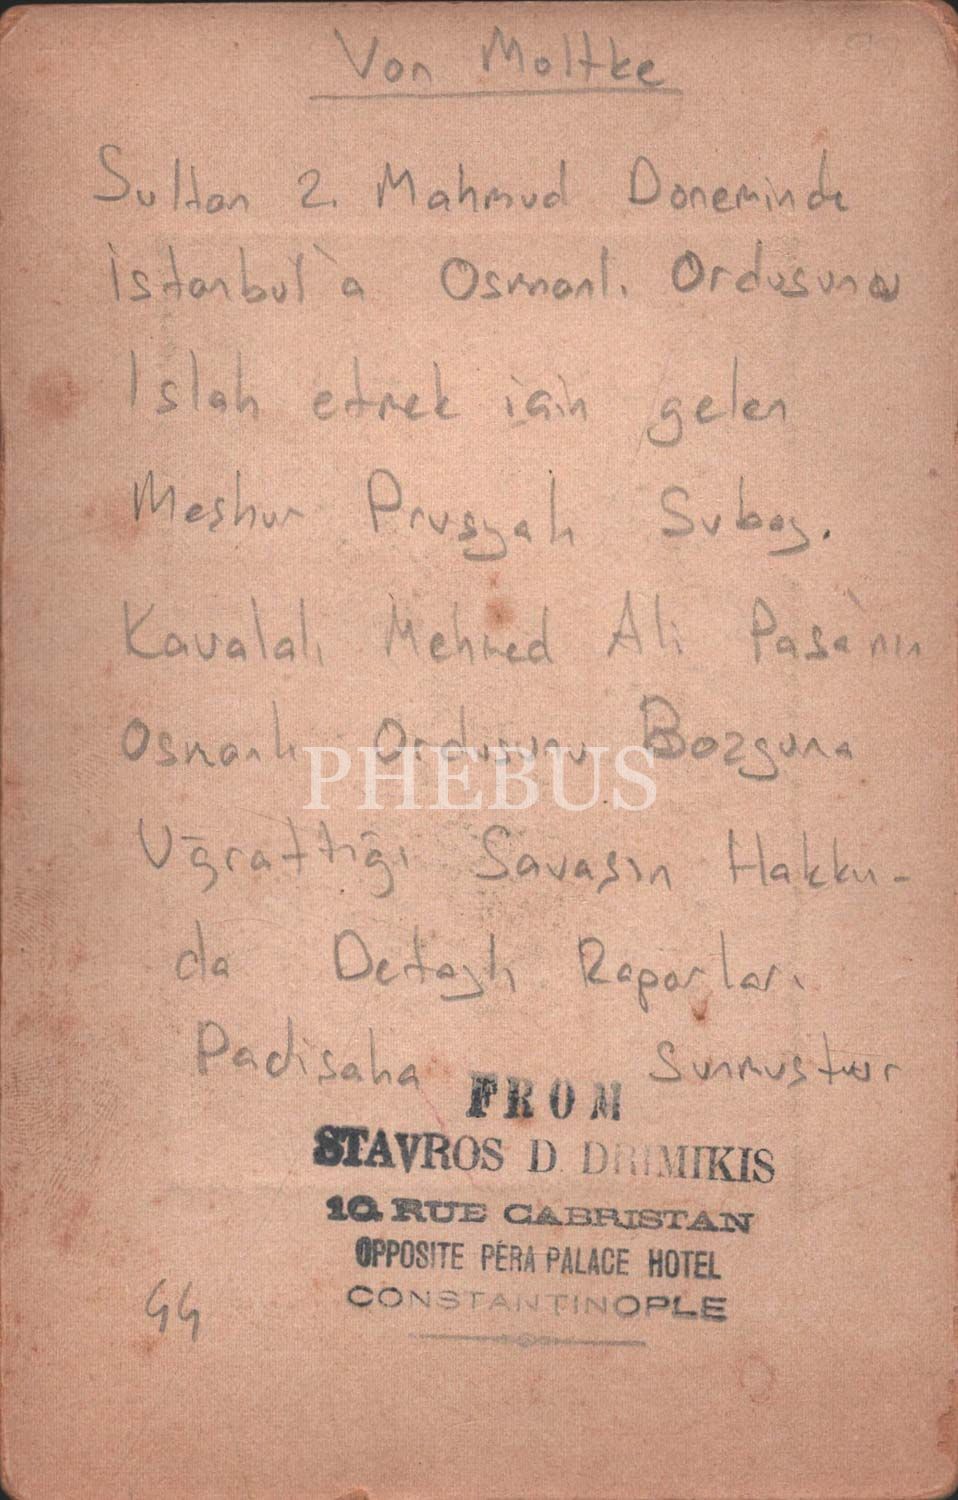 Von Moltke
Sultan 2. Mahmud Doneminde
İstanbul'a Osmanlı Ordusuna
Islah etmek için gelen
Meshur Prusyalı Subay.
Kavalalı Mehmed Ali Pasa'nın
Osmanlı Ordusunu Bozguna
Uğrattığı Savasın Hakkın-
da Detaylı Raporları
Padisaha Sunmustur
PHEBUS
FROM
STAVROS D. DRIMIKIS
10. RUE CABRISTAN
OPPOSITE PÉRA PALACE HOTEL
CONSTANTINOPLE
44